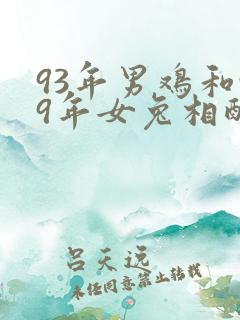 93年男鸡和
9年女兔相配
吕天远
未经同意禁止转载